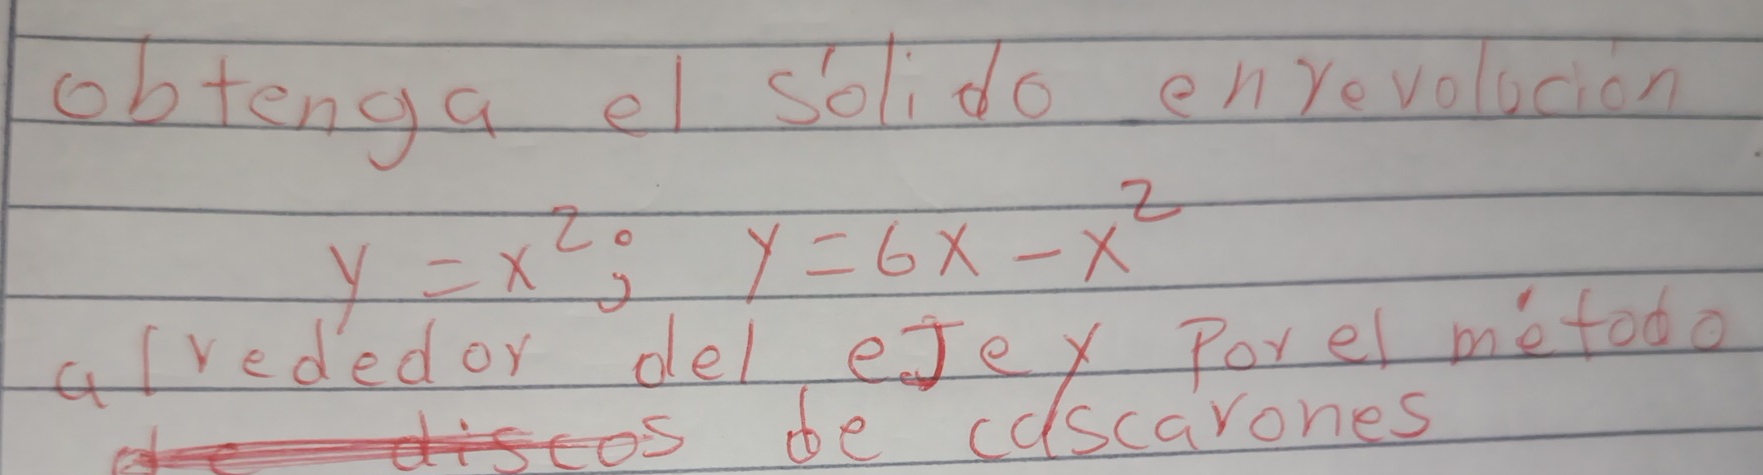 obtenga el sólido en revolución
y = x²; y = 6x - x²
alrededor del eJe y Por el método
de discos de cascarones